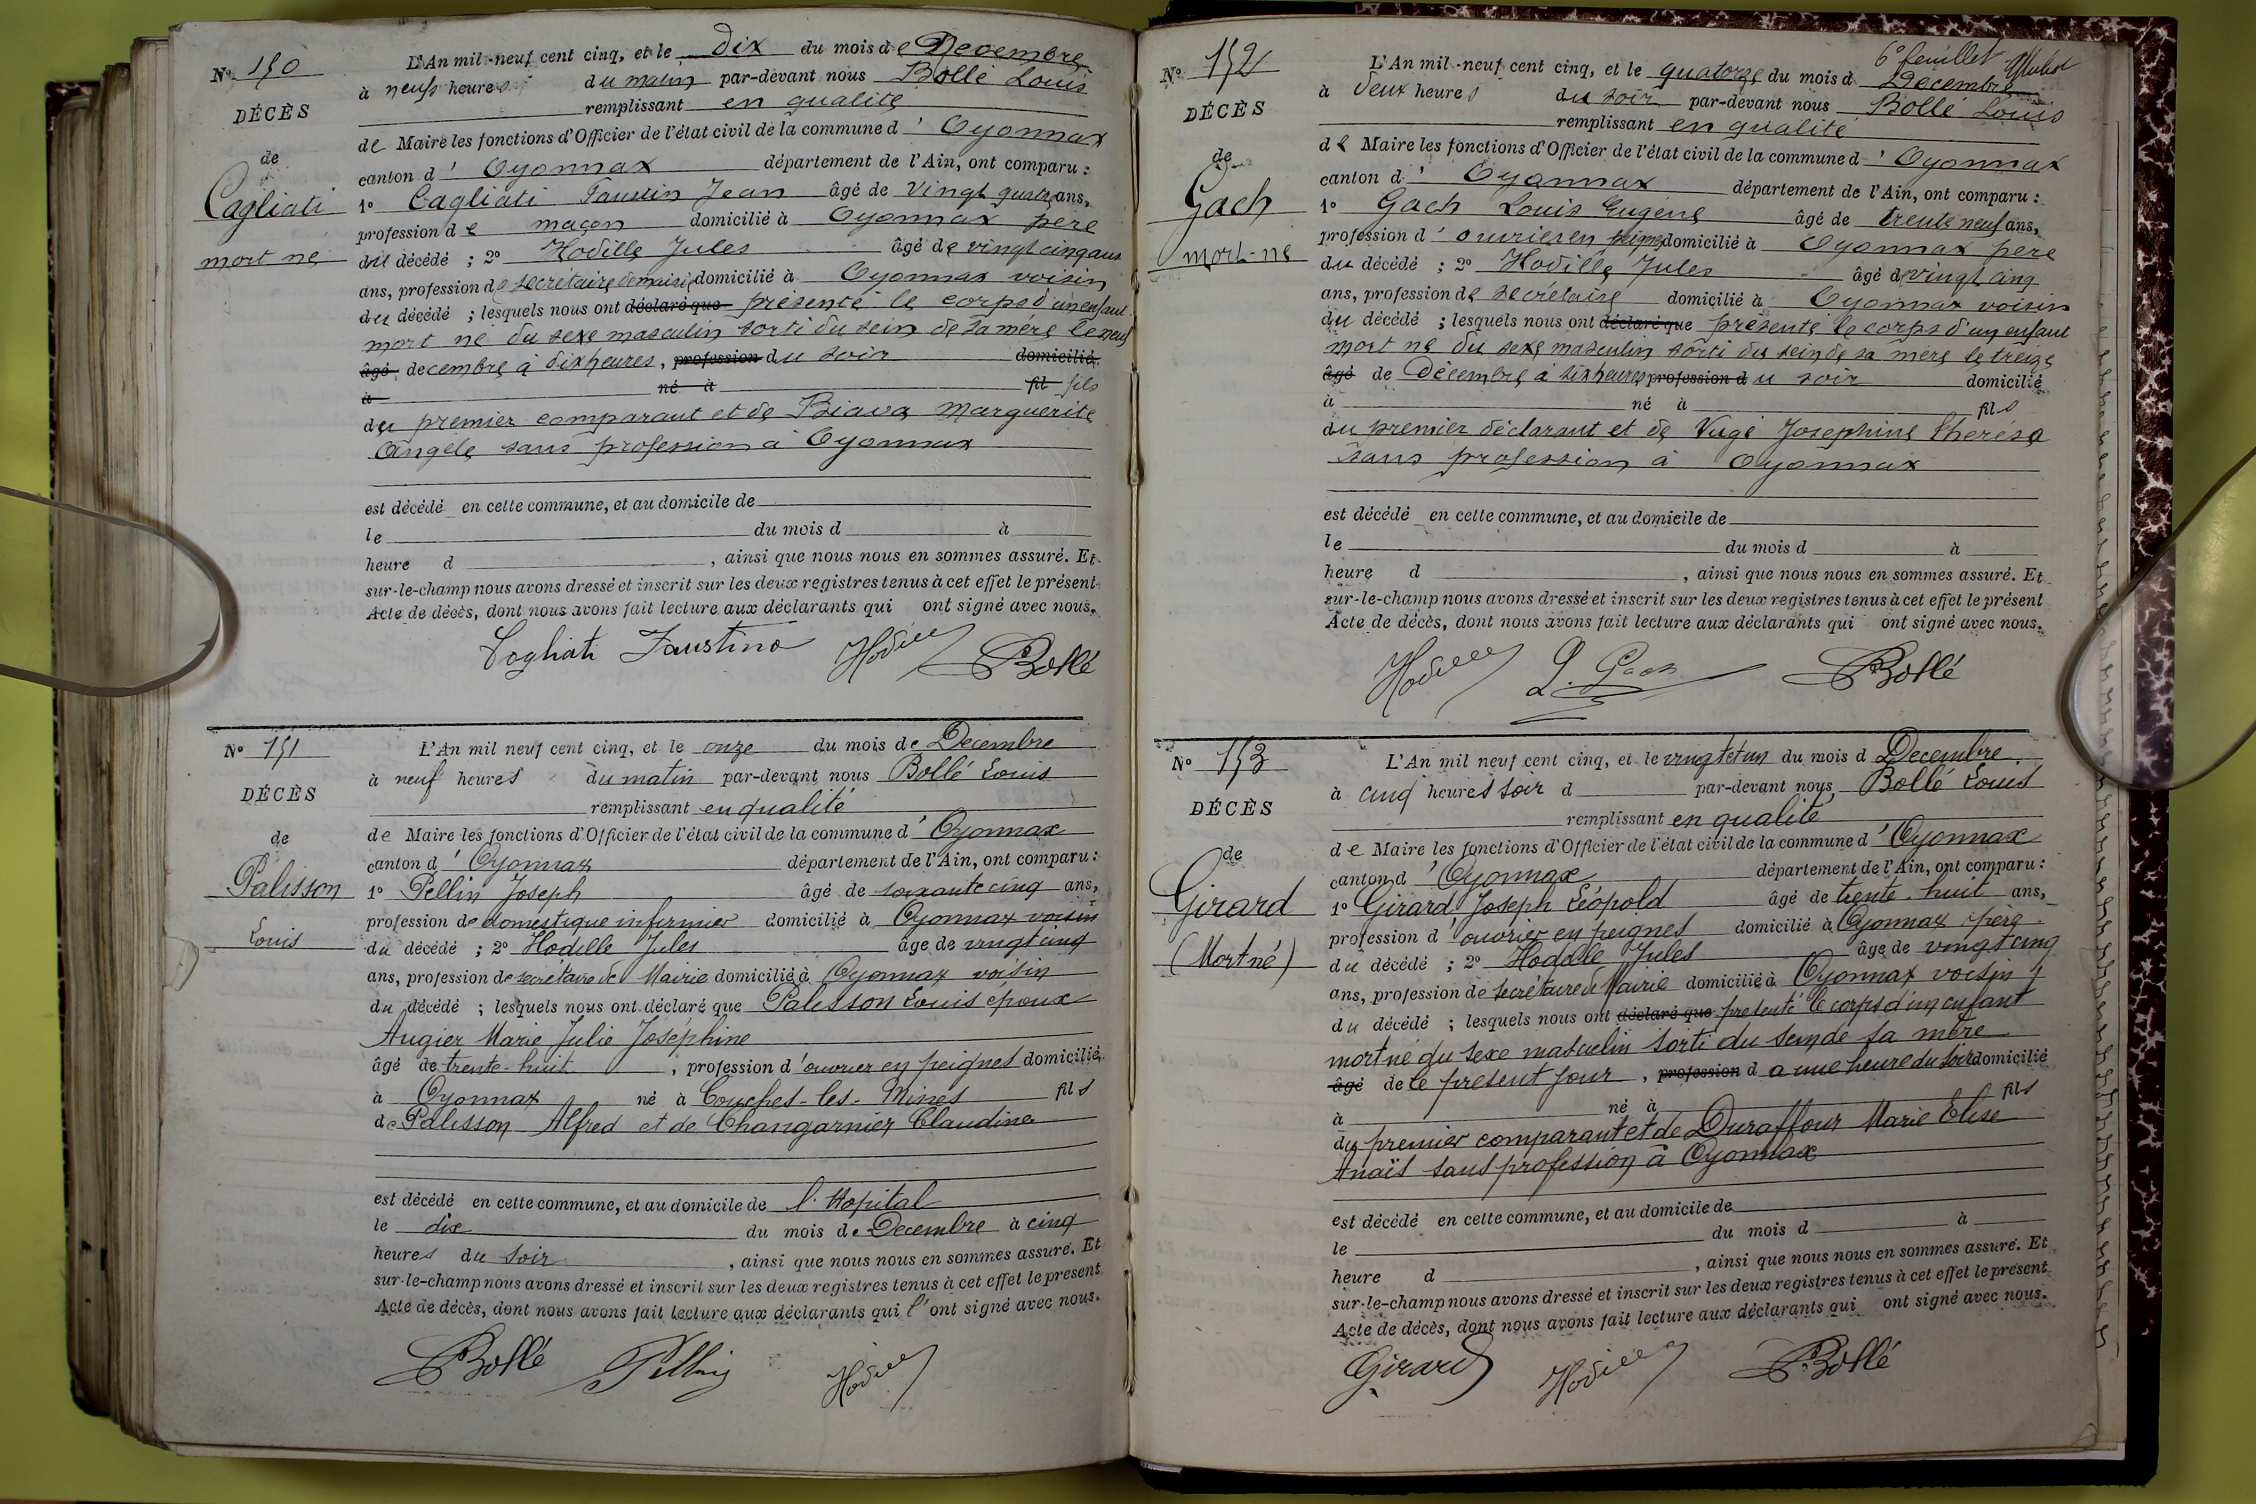 Nº 150
DÉCÈS
de
Cagliati
mort né
L'An mil-neuf cent cinq, et le dix du mois de Decembre
à neuf heures du matin par-devant nous Bollé Louis
remplissant en qualité
de Maire les fonctions d'Officier de l'état civil de la commune d' Oyonnax
canton d' Oyonnax département de l'Ain, ont comparu :
1º Cagliati Faustin Jean âgé de vingt quatre ans,
profession de maçon domicilié à Oyonnax père
du décédé ; 2º Hodille Jules âgé de vingt cinq ans
ans, profession de secrétaire de mairie domicilié à Oyonnax voisin
du décédé ; lesquels nous ont déclaré que présenté le corps d'un enfant
mort né du sexe masculin sorti du sein de sa mère le neuf
âgé decembre à dix heures, profession du soir domicilié
à né à fil fils
du premier comparant et de Biava Marguerite
Angèle sans profession à Oyonnax
est décédé en cette commune, et au domicile de
le du mois d à
heure d , ainsi que nous nous en sommes assuré. Et
sur-le-champ nous avons dressé et inscrit sur les deux registres tenus à cet effet le présent
Acte de décès, dont nous avons fait lecture aux déclarants qui ont signé avec nous.
Cogliati Faustino Hodille Bollé
Nº 151
DÉCÈS
de
Palisson
Louis
L'An mil neuf cent cinq, et le onze du mois de Decembre
à neuf heures du matin par-devant nous Bollé Louis
remplissant en qualité
de Maire les fonctions d'Officier de l'état civil de la commune d' Oyonnax
canton d' Oyonnax département de l'Ain, ont comparu :
1º Pellin Joseph âgé de soixante cinq ans,
profession de domestique infirmier domicilié à Oyonnax voisin
du décédé ; 2º Hodille Jules âgé de vingt cinq
ans, profession de secrétaire de Mairie domicilié à Oyonnax voisin
du décédé ; lesquels nous ont déclaré que Palisson Louis époux
Augier Marie Julie Joséphine
âgé de trente-huit , profession d'ouvrier en peignes domicilié
à Oyonnax né à Couches-les-Mines fils
de Palisson Alfred et de Changarnier Claudine
est décédé en cette commune, et au domicile de l'Hopital
le dix du mois de Decembre à cinq
heures du soir , ainsi que nous nous en sommes assuré. Et
sur-le-champ nous avons dressé et inscrit sur les deux registres tenus à cet effet le present
Acte de décès, dont nous avons fait lecture aux déclarants qui l'ont signé avec nous.
Bollé Pellin Hodille
6e feuillet
Nº 152
DÉCÈS
de
Gach
mort-né
L'An mil-neuf cent cinq, et le quatorze du mois d Decembre
à deux heures du soir par-devant nous Bollé Louis
remplissant en qualité
de Maire les fonctions d'Officier de l'état civil de la commune d' Oyonnax
canton d' Oyonnax département de l'Ain, ont comparu :
1º Gach Louis Eugène âgé de trente neuf ans,
profession d' ouvrier en peignes domicilié à Oyonnax père
du décédé ; 2º Hodille Jules âgé de vingt cinq
ans, profession de secrétaire domicilié à Oyonnax voisin
du décédé ; lesquels nous ont déclaré que présenté le corps d'un enfant
mort né du sexe masculin sorti du sein de sa mère le treize
âgé de Décembre à six heures profession du soir domicilié
à né à fils
du premier déclarant et de Vuge Josephine Thérèse
sans profession à Oyonnax
est décédé en cette commune, et au domicile de
le du mois d à
heure d , ainsi que nous nous en sommes assuré. Et
sur-le-champ nous avons dressé et inscrit sur les deux registres tenus à cet effet le présent
Acte de décès, dont nous avons fait lecture aux déclarants qui ont signé avec nous.
Hodille L. Gach Bollé
Nº 153
DÉCÈS
de
Girard
(Mort né)
L'An mil neuf cent cinq, et le vingt et un du mois d Decembre
à cinq heures soir d par-devant nous Bollé Louis
remplissant en qualité
de Maire les fonctions d'Officier de l'état civil de la commune d' Oyonnax
canton d' Oyonnax département de l'Ain, ont comparu :
1º Girard Joseph Léopold âgé de trente-huit ans,
profession d'ouvrier en peignes domicilié à Oyonnax père
du décédé ; 2º Hodille Jules âge de vingt cinq
ans, profession de secrétaire de Mairie domicilié à Oyonnax voisin
du décédé ; lesquels nous ont déclaré que presenté le corps d'un enfant
mort né du sexe masculin sorti du sein de sa mère
âgé de le present jour , profession d a une heure du soir domicilié
à né à fils
du premier comparant et de Duraffour Marie Elise
Anaïs sans profession à Oyonnax
est décédé en cette commune, et au domicile de
le du mois d à
heure d , ainsi que nous nous en sommes assuré. Et
sur-le-champ nous avons dressé et inscrit sur les deux registres tenus à cet effet le présent
Acte de décès, dont nous avons fait lecture aux déclarants qui ont signé avec nous.
Girard Hodille Bollé